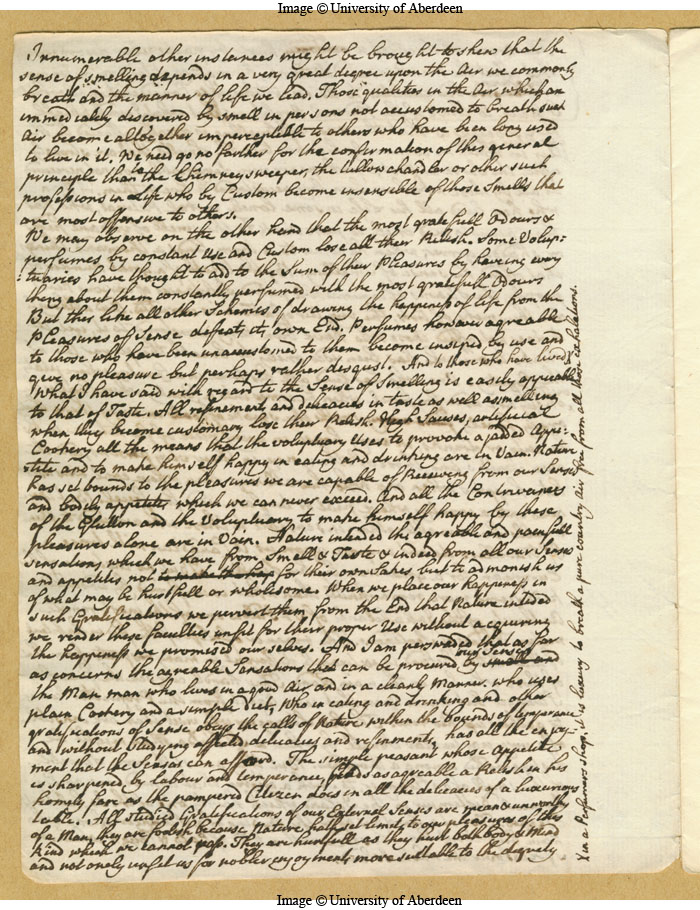 Image © University of Aberdeen
Innumerable other instances might be brought to shew that the
sense of smelling depends in a very great degree upon the Air we commonly
breath and the manner of life we lead. Those qualities in the Air which are
immediately discovered by smell in persons not accustomed to breath such
Air become altogether imperceptible to others who have been long used
to live in it. We need go no farther for the confirmation of this general
principle than to the Chimney sweeper, the tallow chandler or other such
professions in Life who by Custom become insensible of those Smells that
are most offensive to others.
We may observe on the other hand that the most gratefull Odours &
perfumes by constant Use and Custom lose all their Relish. Some Volup:
:tuaries have thought to add to the Sum of their Pleasures by having every
thing about them constantly perfumed with the most gratefull Odours
But this like all other Schemes of drawing the happiness of life from the
Pleasures of Sense defeats its own End. Perfumes however agreeable
to those who have been unaccustomed to them become insipid by use and
give no pleasure but perhaps rather disgust. And to those who have lived X
What I have said with regard to the Sense of Smelling is easily applicable
to that of Taste. All refinements and delicacies in taste as well as smelling
when they become customary lose their Relish. High Sauses, artificial
Cookery all the means that the voluptuary Uses to provoke a jaded Appe:
:tite and to make himself happy in eating and drinking are in Vain. Nature
has set bounds to the pleasures we are capable of Receiving from our Senses
and bodily appetites which we can never exceed. And all the Contrivances
of the Glutton and the Voluptuary to make himself happy by these
pleasures alone are in Vain. Nature intended the agreable and painfull
sensations which we have from Smell & Taste & indeed from all our Senses
and appetites not to make them hap for their own sakes but to admonish us
of what may be hurtfull or wholesome. When we place our happiness in
such Gratifications we pervert them from the End that Nature intended
we render these faculties unfit for their proper Use without acquiring
the happiness we promised our selves. And I am perswaded that as far
as concerns the agreable Sensations that can be procured by our Senses and
the Man man who lives in a good Air and in a cleanly Manner, who uses
plain Cookery and a simple Diet, Who in eating and drinking and other
gratifications of Sense obeys the calls of Nature within the bounds of temperance
and without studying affected delicacies and refinements, has all the enjoy-
ment that the Senses can afford. The simple peasant whose Appetite
is sharpened by labour and temperance, finds as agreable a Relish in his
homely fare as the pampered Citizen does in all the delicacies of a luxurious
table. All studied Gratifications of our External Senses are mean & unworthy
of a Man, they are foolish because Nature hath set limits to our pleasures of this
kind which we cannot pass. They are hurtfull as they hurt both body & Mind
and not onely unfit us for nobler enjoyments more suitable to the dignity
X in a Perfumers shop, it is luxury to breath a pure country air free from all those exhalations.
Image © University of Aberdeen